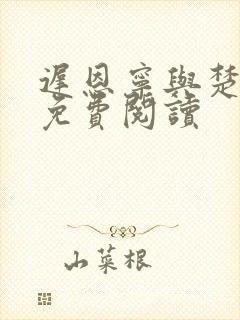 遲恩寧與楚
免費閱讀
山菜根